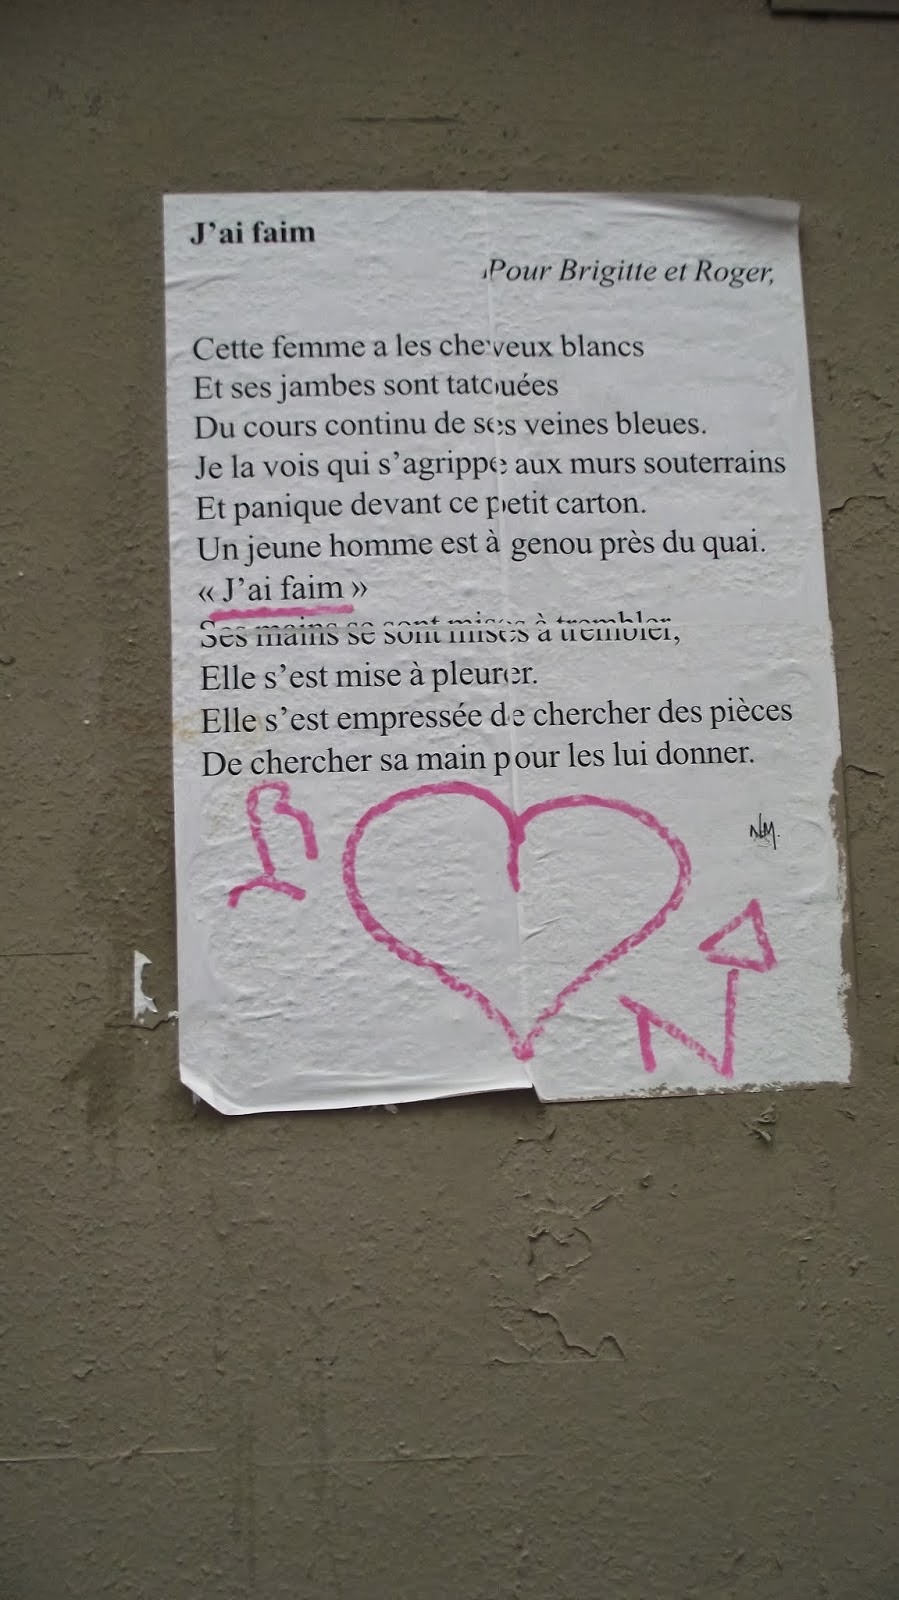 J'ai faim
Pour Brigitte et Roger,
Cette femme a les cheveux blancs
Et ses jambes sont tatouées
Du cours continu de ses veines bleues.
Je la vois qui s'agrippe aux murs souterrains
Et panique devant ce petit carton.
Un jeune homme est à genou près du quai.
« J'ai faim »
Ses mains se sont mises à trembler,
Elle s'est mise à pleurer.
Elle s'est empressée de chercher des pièces
De chercher sa main pour les lui donner.
NM.